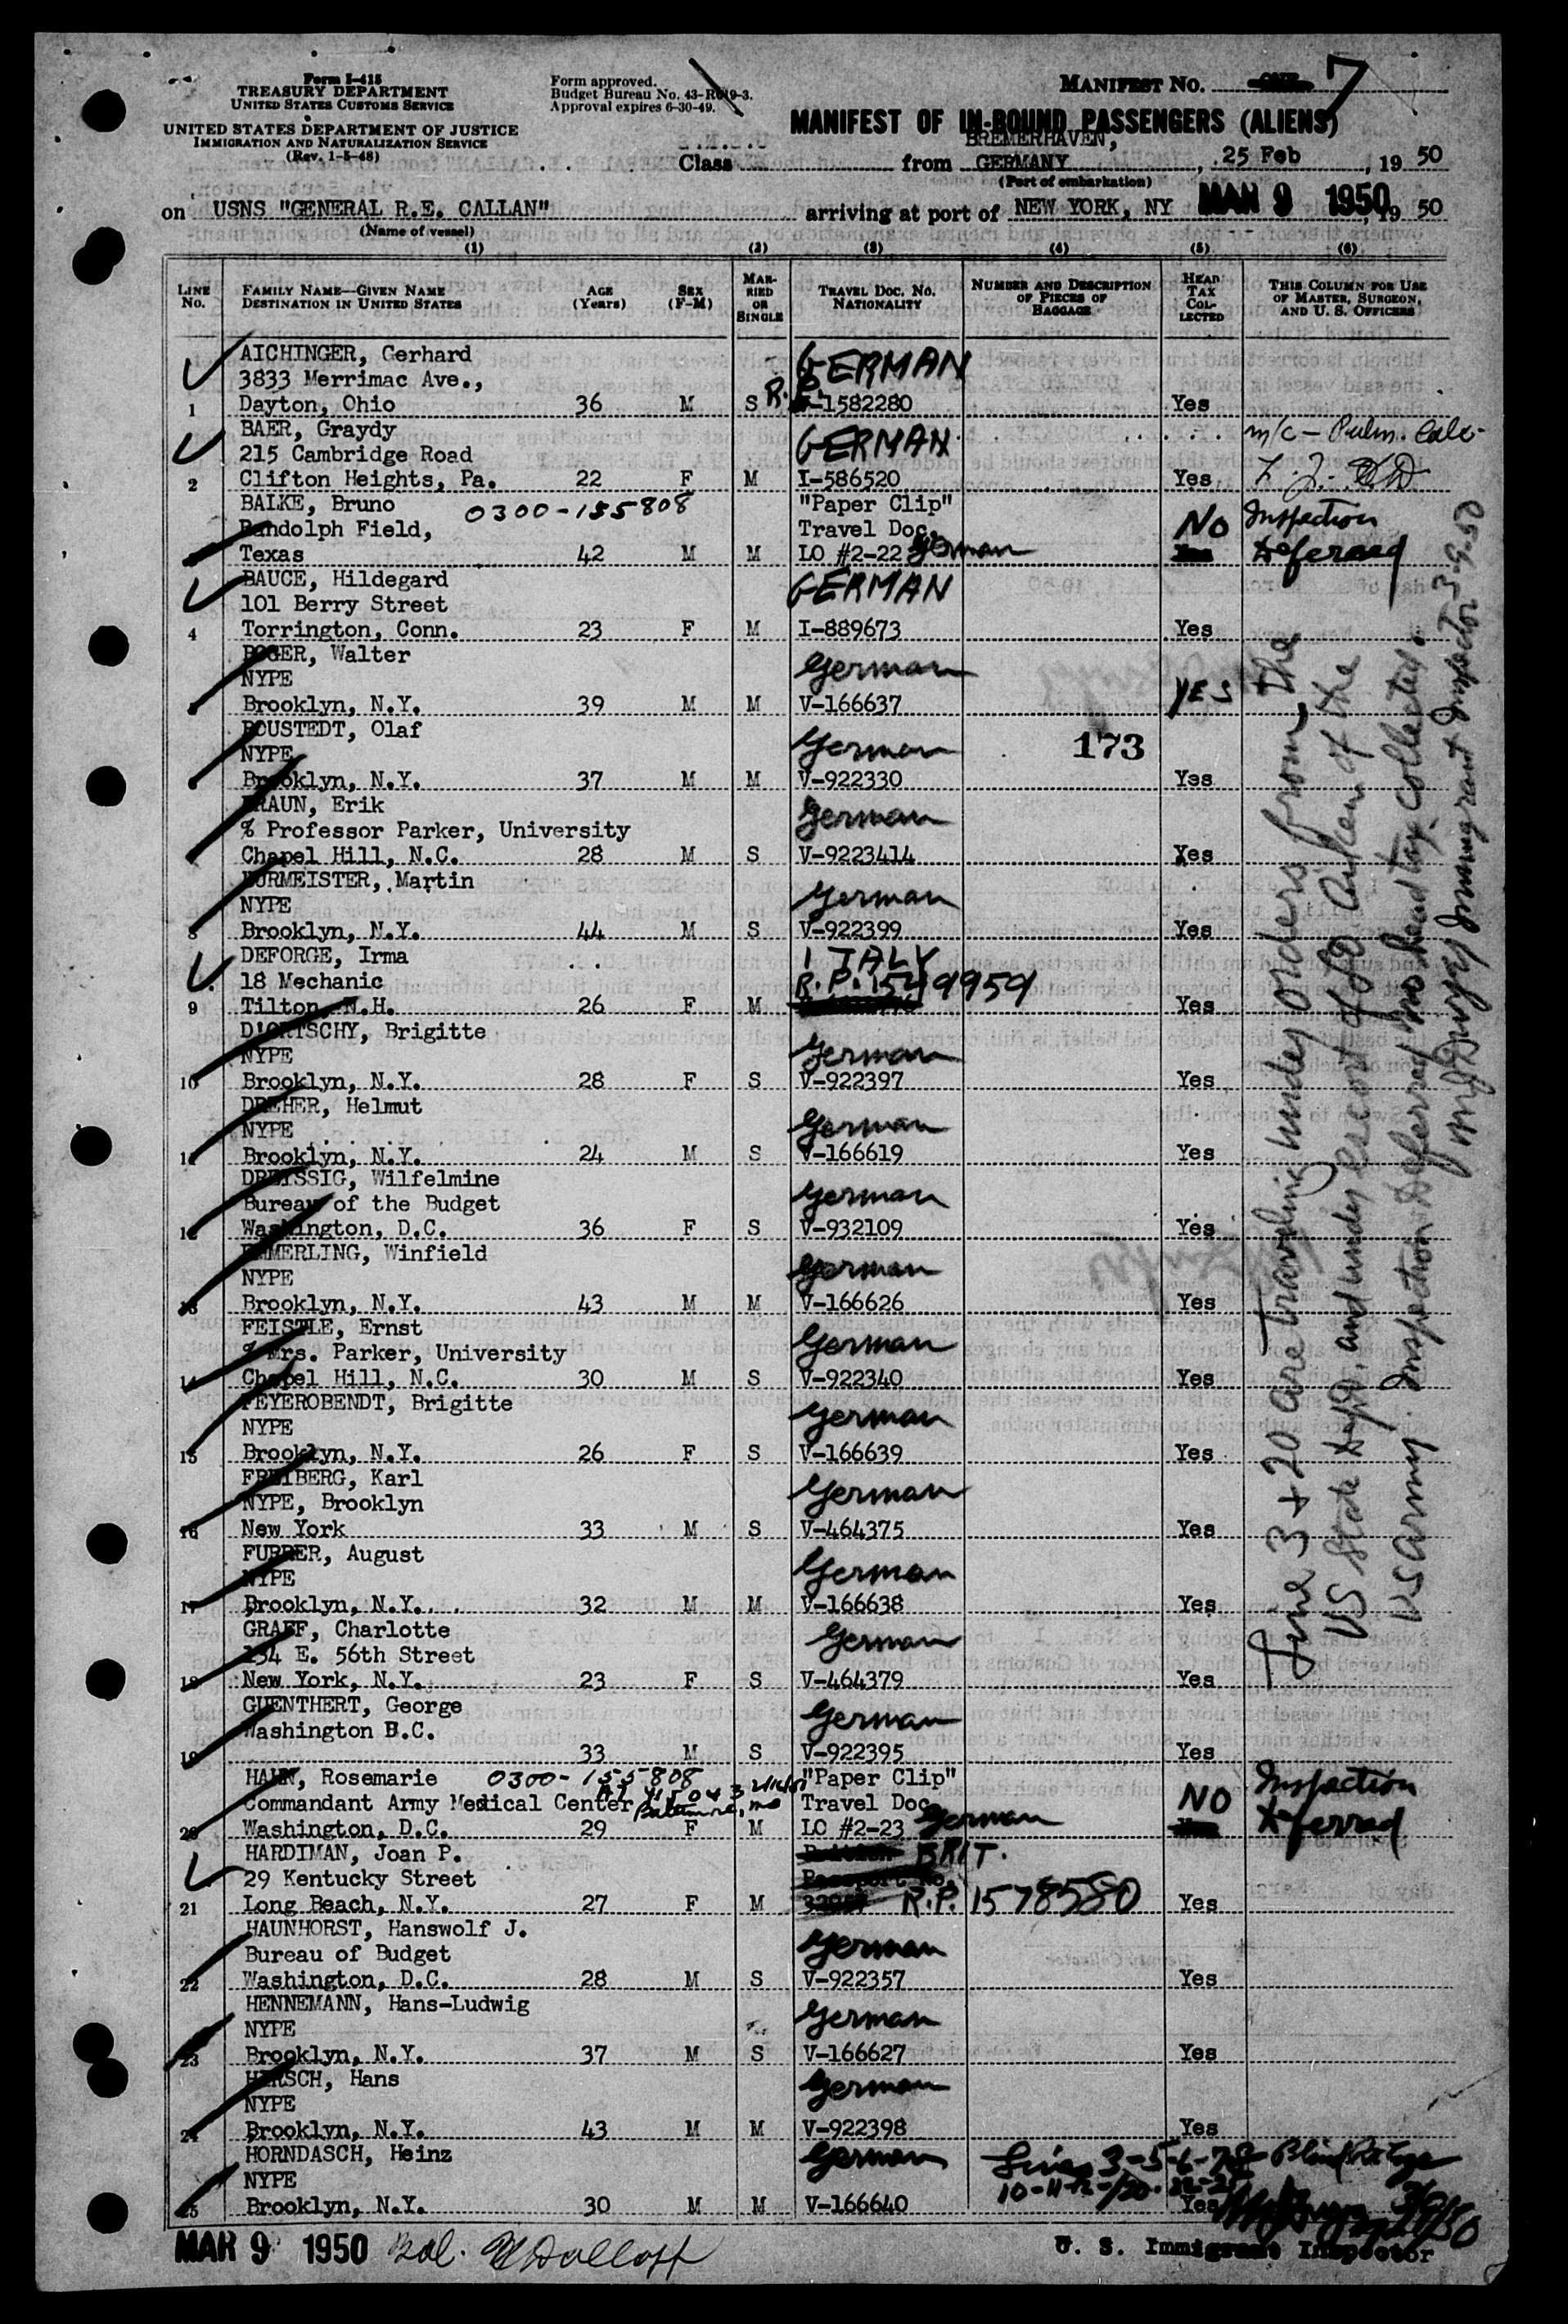 Form I-415
TREASURY DEPARTMENT
UNITED STATES CUSTOMS SERVICE
UNITED STATES DEPARTMENT OF JUSTICE
IMMIGRATION AND NATURALIZATION SERVICE
(Rev. 1-5-48)
Form approved.
Budget Bureau No. 43-R019-3.
Approval expires 6-30-49.
MANIFEST NO. 7
MANIFEST OF IN-BOUND PASSENGERS (ALIENS)
BREMERHAVEN,
Class from GERMANY, 25 Feb, 19 50
(Port of embarkation)
on USNS "GENERAL R.E. CALLAN" arriving at port of NEW YORK, NY MAR 9 1950, 19 50
(Name of vessel)
(1) (2) (3) (4) (5) (6)
LINE No. FAMILY NAME—GIVEN NAME DESTINATION IN UNITED STATES AGE (Years) SEX (F-M) MARRIED OR SINGLE TRAVEL DOC. NO. NATIONALITY NUMBER AND DESCRIPTION OF PIECES OF BAGGAGE HEAD TAX COLLECTED THIS COLUMN FOR USE OF MASTER, SURGEON, AND U. S. OFFICERS
AICHINGER, Gerhard GERMAN
3833 Merrimac Ave., R.P.
1 Dayton, Ohio 36 M S 1582280 Yes
BAER, Graydy GERMAN m/c - Pulm. Calc-
215 Cambridge Road
2 Clifton Heights, Pa. 22 F M I-586520 Yes
BALKE, Bruno 0300-155808 "Paper Clip"
Randolph Field, Travel Doc. NO Inspection
Texas 42 M M LO #2-22 German Deferred
BAUCE, Hildegard GERMAN
101 Berry Street
4 Torrington, Conn. 23 F M I-889673 Yes
BOGER, Walter German
NYPE
Brooklyn, N.Y. 39 M M V-166637 YES
BOUSTEDT, Olaf
NYPE German 173
Brooklyn, N.Y. 37 M M V-922330 Yes
BRAUN, Erik German
% Professor Parker, University
Chapel Hill, N.C. 28 M S V-9223414 Yes
BURMEISTER, Martin
NYPE German
8 Brooklyn, N.Y. 44 M S V-922399 Yes
DEFORGE, Irma ITALY
18 Mechanic R.P. 1549959
9 Tilton, N.H. 26 F M Yes
D'ORTSCHY, Brigitte
NYPE German
10 Brooklyn, N.Y. 28 F S V-922397 Yes
DREHER, Helmut
NYPE German
11 Brooklyn, N.Y. 24 M S V-166619 Yes
DREYSSIG, Wilfelmine
Bureau of the Budget German
12 Washington, D.C. 36 F S V-932109 Yes
EMMERLING, Winfield
NYPE German
13 Brooklyn, N.Y. 43 M M V-166626 Yes
FEISTLE, Ernst
% Mrs. Parker, University German
14 Chapel Hill, N.C. 30 M S V-922340 Yes
FEYEROBENDT, Brigitte
NYPE German
15 Brooklyn, N.Y. 26 F S V-166639 Yes
FREIBERG, Karl
NYPE, Brooklyn German
16 New York 33 M S V-464375 Yes
FURRER, August
NYPE German
17 Brooklyn, N.Y. 32 M M V-166638 Yes
GRAEF, Charlotte
134 E. 56th Street German
18 New York, N.Y. 23 F S V-464379 Yes
GUENTHERT, George
Washington D.C. German
19 33 M S V-922395 Yes
HAHN, Rosemarie 0300-155808 "Paper Clip" Inspection
Commandant Army Medical Center Baltimore, Travel Doc. NO
20 Washington, D.C. 29 F M LO #2-23 German Deferred
HARDIMAN, Joan P. BRIT.
29 Kentucky Street
21 Long Beach, N.Y. 27 F M R.P. 1578580 Yes
HAUNHORST, Hanswolf J.
Bureau of Budget German
22 Washington, D.C. 28 M S V-922357 Yes
HENNEMANN, Hans-Ludwig
NYPE German
23 Brooklyn, N.Y. 37 M S V-166627 Yes
HIRSCH, Hans German
NYPE
24 Brooklyn, N.Y. 43 M M V-922398 Yes
HORNDASCH, Heinz German
NYPE
25 Brooklyn, N.Y. 30 M M V-166640 Yes
Line 3 + 20 are traveling under orders from the
US State Dept. and under escort of
US Army. Inspection deferred no head tax collected.
Immigrant Inspector 3-9-50
MAR 9 1950
U. S. Immigrant Inspector